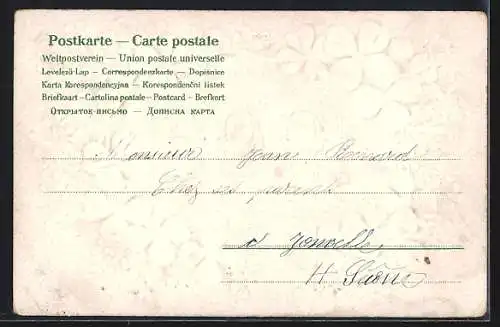 Postkarte — Carte postale
Weltpostverein — Union postale universelle
Levelező-Lap — Correspondenzkarte — Dopisnice
Karta Korespondencyjna — Korespondenční lístek
Briefkaart — Cartolina postale — Postcard — Brefkort
Открытое письмо — Дописна карта
Monsieur Jean
Chez ses parents
à Jonvelle
H Saône